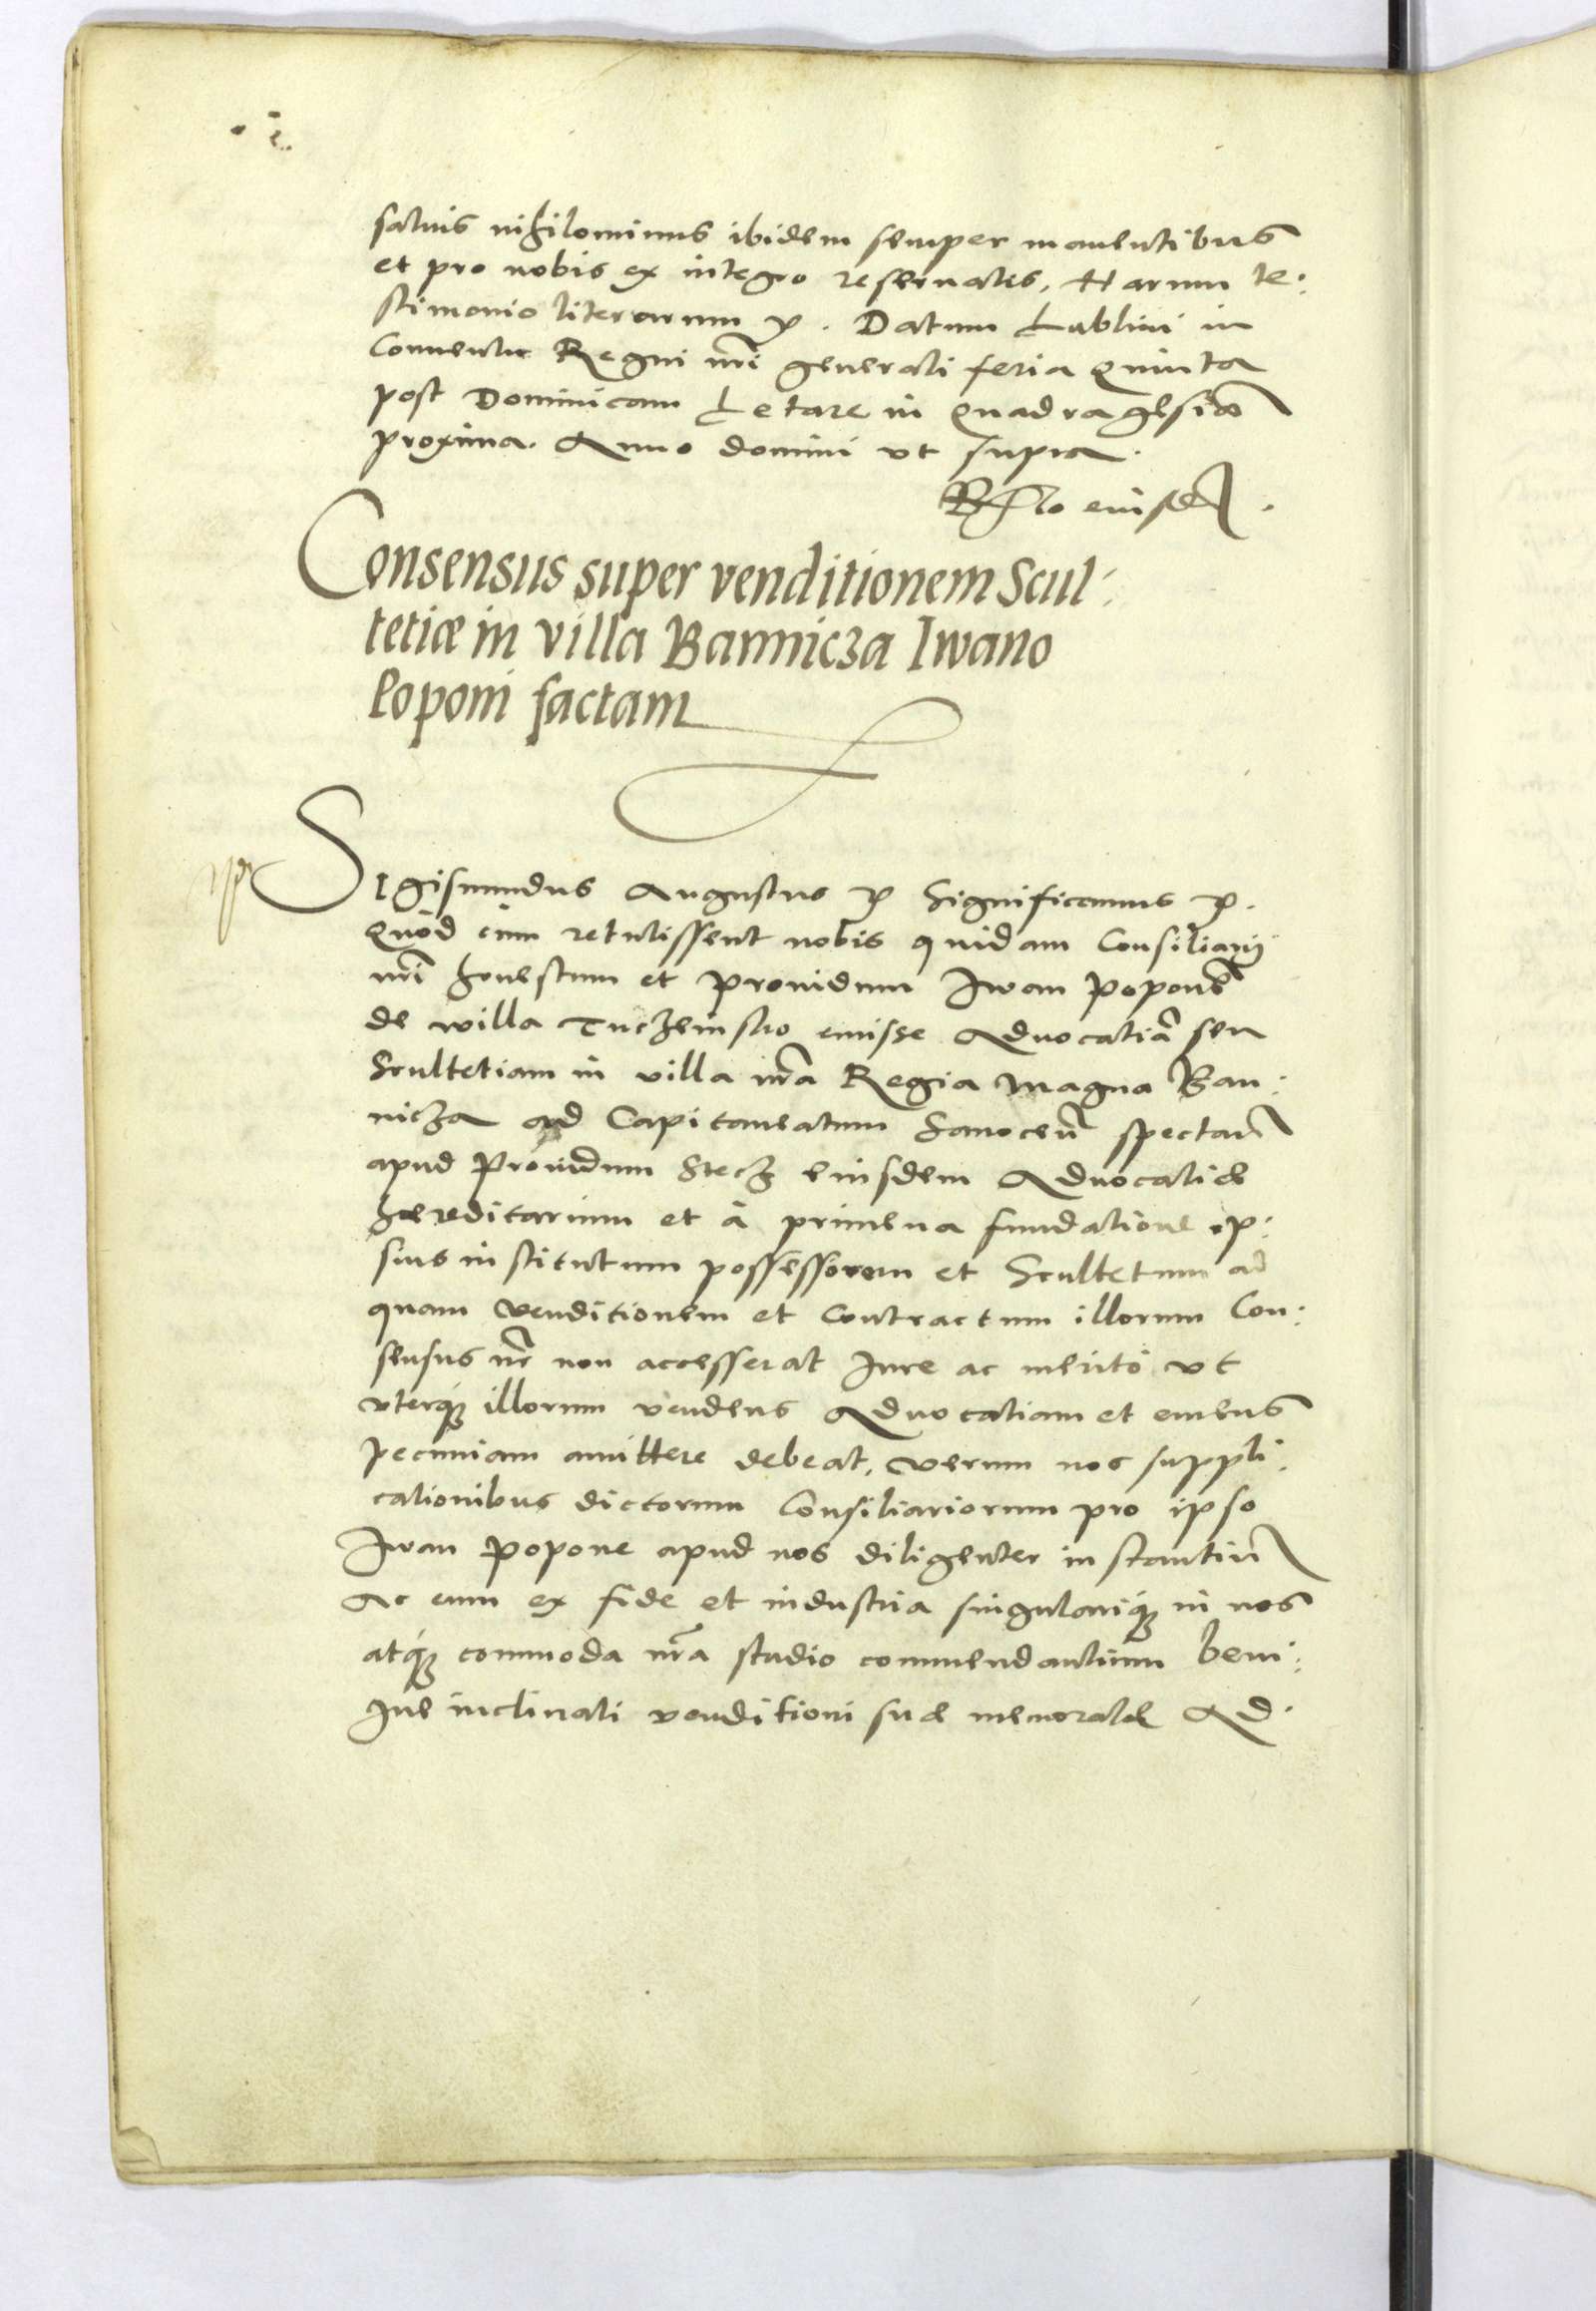 saluis nihilominus ibidem semper manentibus
et pro nobis ex integro reseruatis, Harum te:
stimonio literarum ꝛc. Datum Lublini in
Conuentu Regni nr̃i generali feria Quinta
post Dominicam Letare in Quadragesia
proxima. Anno domini vt supra.
Rl͠o eiusdẽ.
Consensus super venditionem Scul:
tetiæ in villa Bannicza Iwano
Poponi factam
SIgismundus Augustus ꝛc Significamus ꝛc.
Quòd cùm retulissent nobis quidam Consiliarij
nr̃i honestum et prouidum Iwan Poponẽ
de willa emisse Aduocatiã seu
Scultetiam in villa nr̃a Regia Magna Ban:
nicza ad Capitaneatum Sanoceñ spectañ
apud Prouidum Stecz eiusdem Aduocatiæ
hæreditarium et à primeua fundatione ip:
sius institutum possessorem et Scultetum ad
quam venditionem et Contractum illorum Con:
sensus nr̃ non accesserat Iure ac meritò vt
vterq́ꝫ illorum vendens Aduocatiam et emens
pecuniam amittere debeat, verum nos suppli:
cationibus dictorum Consiliariorum pro ipso
Iwan Popone apud nos diligenter instantiũ
Ac eum ex fide et industria singulariq́ꝫ in nos
atq́ꝫ commoda nr̃a studio commendantium beni:
gne inclinati venditioni suæ memoratæ Ad: